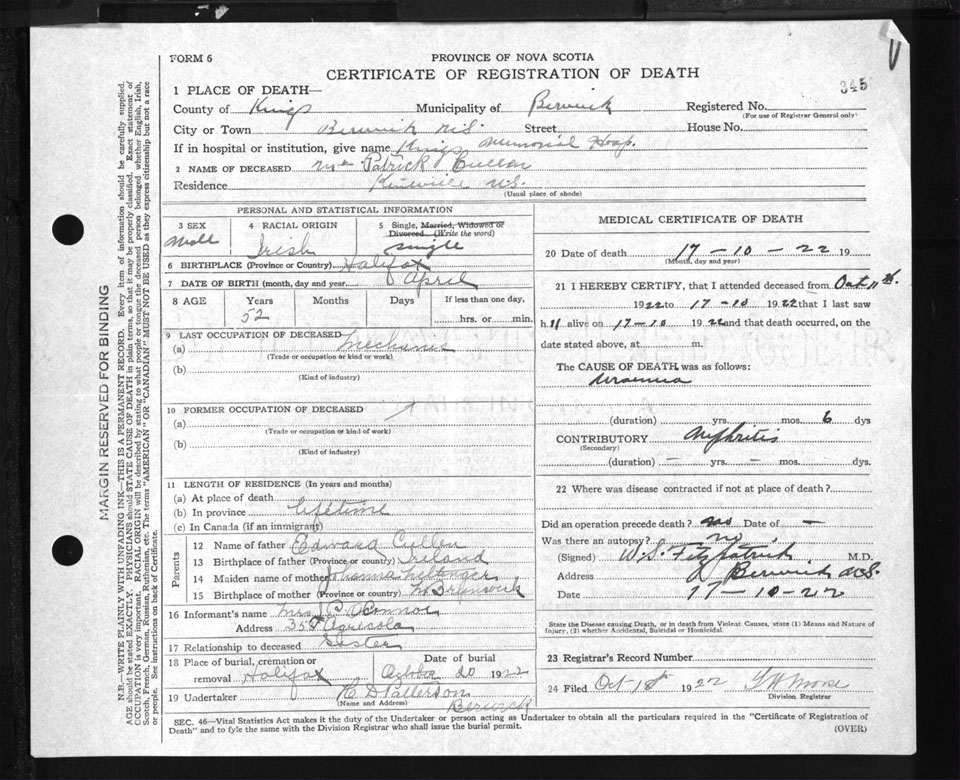 FORM 6
PROVINCE OF NOVA SCOTIA
CERTIFICATE OF REGISTRATION OF DEATH
345
1 PLACE OF DEATH—
County of Kings Municipality of Berwick Registered No.
(For use of Registrar General only)
City or Town Berwick N.S. Street House No.
If in hospital or institution, give name Kings Memorial Hosp.
2 NAME OF DECEASED Mr. Patrick Cullen
Residence Kentville N.S.
(Usual place of abode)
PERSONAL AND STATISTICAL INFORMATION
3 SEX 4 RACIAL ORIGIN 5 Single, Married, Widowed or Divorced (Write the word)
Male Irish Single
6 BIRTHPLACE (Province or Country) Halifax
7 DATE OF BIRTH (month, day and year) April
8 AGE Years Months Days If less than one day,
52 hrs. or min.
9 LAST OCCUPATION OF DECEASED
(a) Mechanic
(Trade or occupation or kind or work)
(b)
(Kind of industry)
10 FORMER OCCUPATION OF DECEASED
(a)
(Trade or occupation or kind of work)
(b)
(Kind of industry)
11 LENGTH OF RESIDENCE (In years and months)
(a) At place of death
(b) In province lifetime
(c) In Canada (if an immigrant)
Parents
12 Name of father Edward Cullen
13 Birthplace of father (Province or country) Ireland
14 Maiden name of mother
15 Birthplace of mother (Province or country) N Brunswick
16 Informant's name Mrs O'Connor
Address Agricola
17 Relationship to deceased Sister
18 Place of burial, cremation or removal Halifax Date of burial October 20 1922
19 Undertaker Patterson
(Name and Address) Berwick
MEDICAL CERTIFICATE OF DEATH
20 Date of death 17-10-22 19
(Month, day and year)
21 I HEREBY CERTIFY, that I attended deceased from Oct 11th
1922 to 17-10 1922 that I last saw
h alive on 17-10 1922 and that death occurred, on the
date stated above, at m.
The CAUSE OF DEATH was as follows:
Uraemia
(duration) yrs. mos. 6 dys
CONTRIBUTORY Nephritis
(Secondary)
(duration) — yrs. — mos. dys.
22 Where was disease contracted if not at place of death?
Did an operation precede death? no Date of —
Was there an autopsy? no
(Signed) W.S. Fitzpatrick M.D.
Address Berwick N.S.
Date 17-10-22
State the Disease causing Death, or in death from Violent Causes, state (1) Means and Nature of
Injury, (2) whether Accidental, Suicidal or Homicidal.
23 Registrar's Record Number
24 Filed Oct 18 1922 Morse
Division Registrar
SEC. 46—Vital Statistics Act makes it the duty of the Undertaker or person acting as Undertaker to obtain all the particulars required in the "Certificate of Registration of
Death" and to fyle the same with the Division Registrar who shall issue the burial permit.
(OVER)
MARGIN RESERVED FOR BINDING
N.B.—WRITE PLAINLY WITH UNFADING INK—THIS IS A PERMANENT RECORD. Every item of information should be carefully supplied.
AGE should be stated EXACTLY. PHYSICIANS should STATE CAUSE OF DEATH in plain terms, so that it may be properly classified. Exact statement of
OCCUPATION is very important. RACIAL ORIGIN will be described by stating to what people or tongue the deceased person belonged whether English, Irish,
Scotch, French, German, Russian, Ruthenian, etc. The terms "AMERICAN" OR "CANADIAN" MUST NOT BE USED as they express citizenship but not a race
or people. See instructions on back of Certificate.